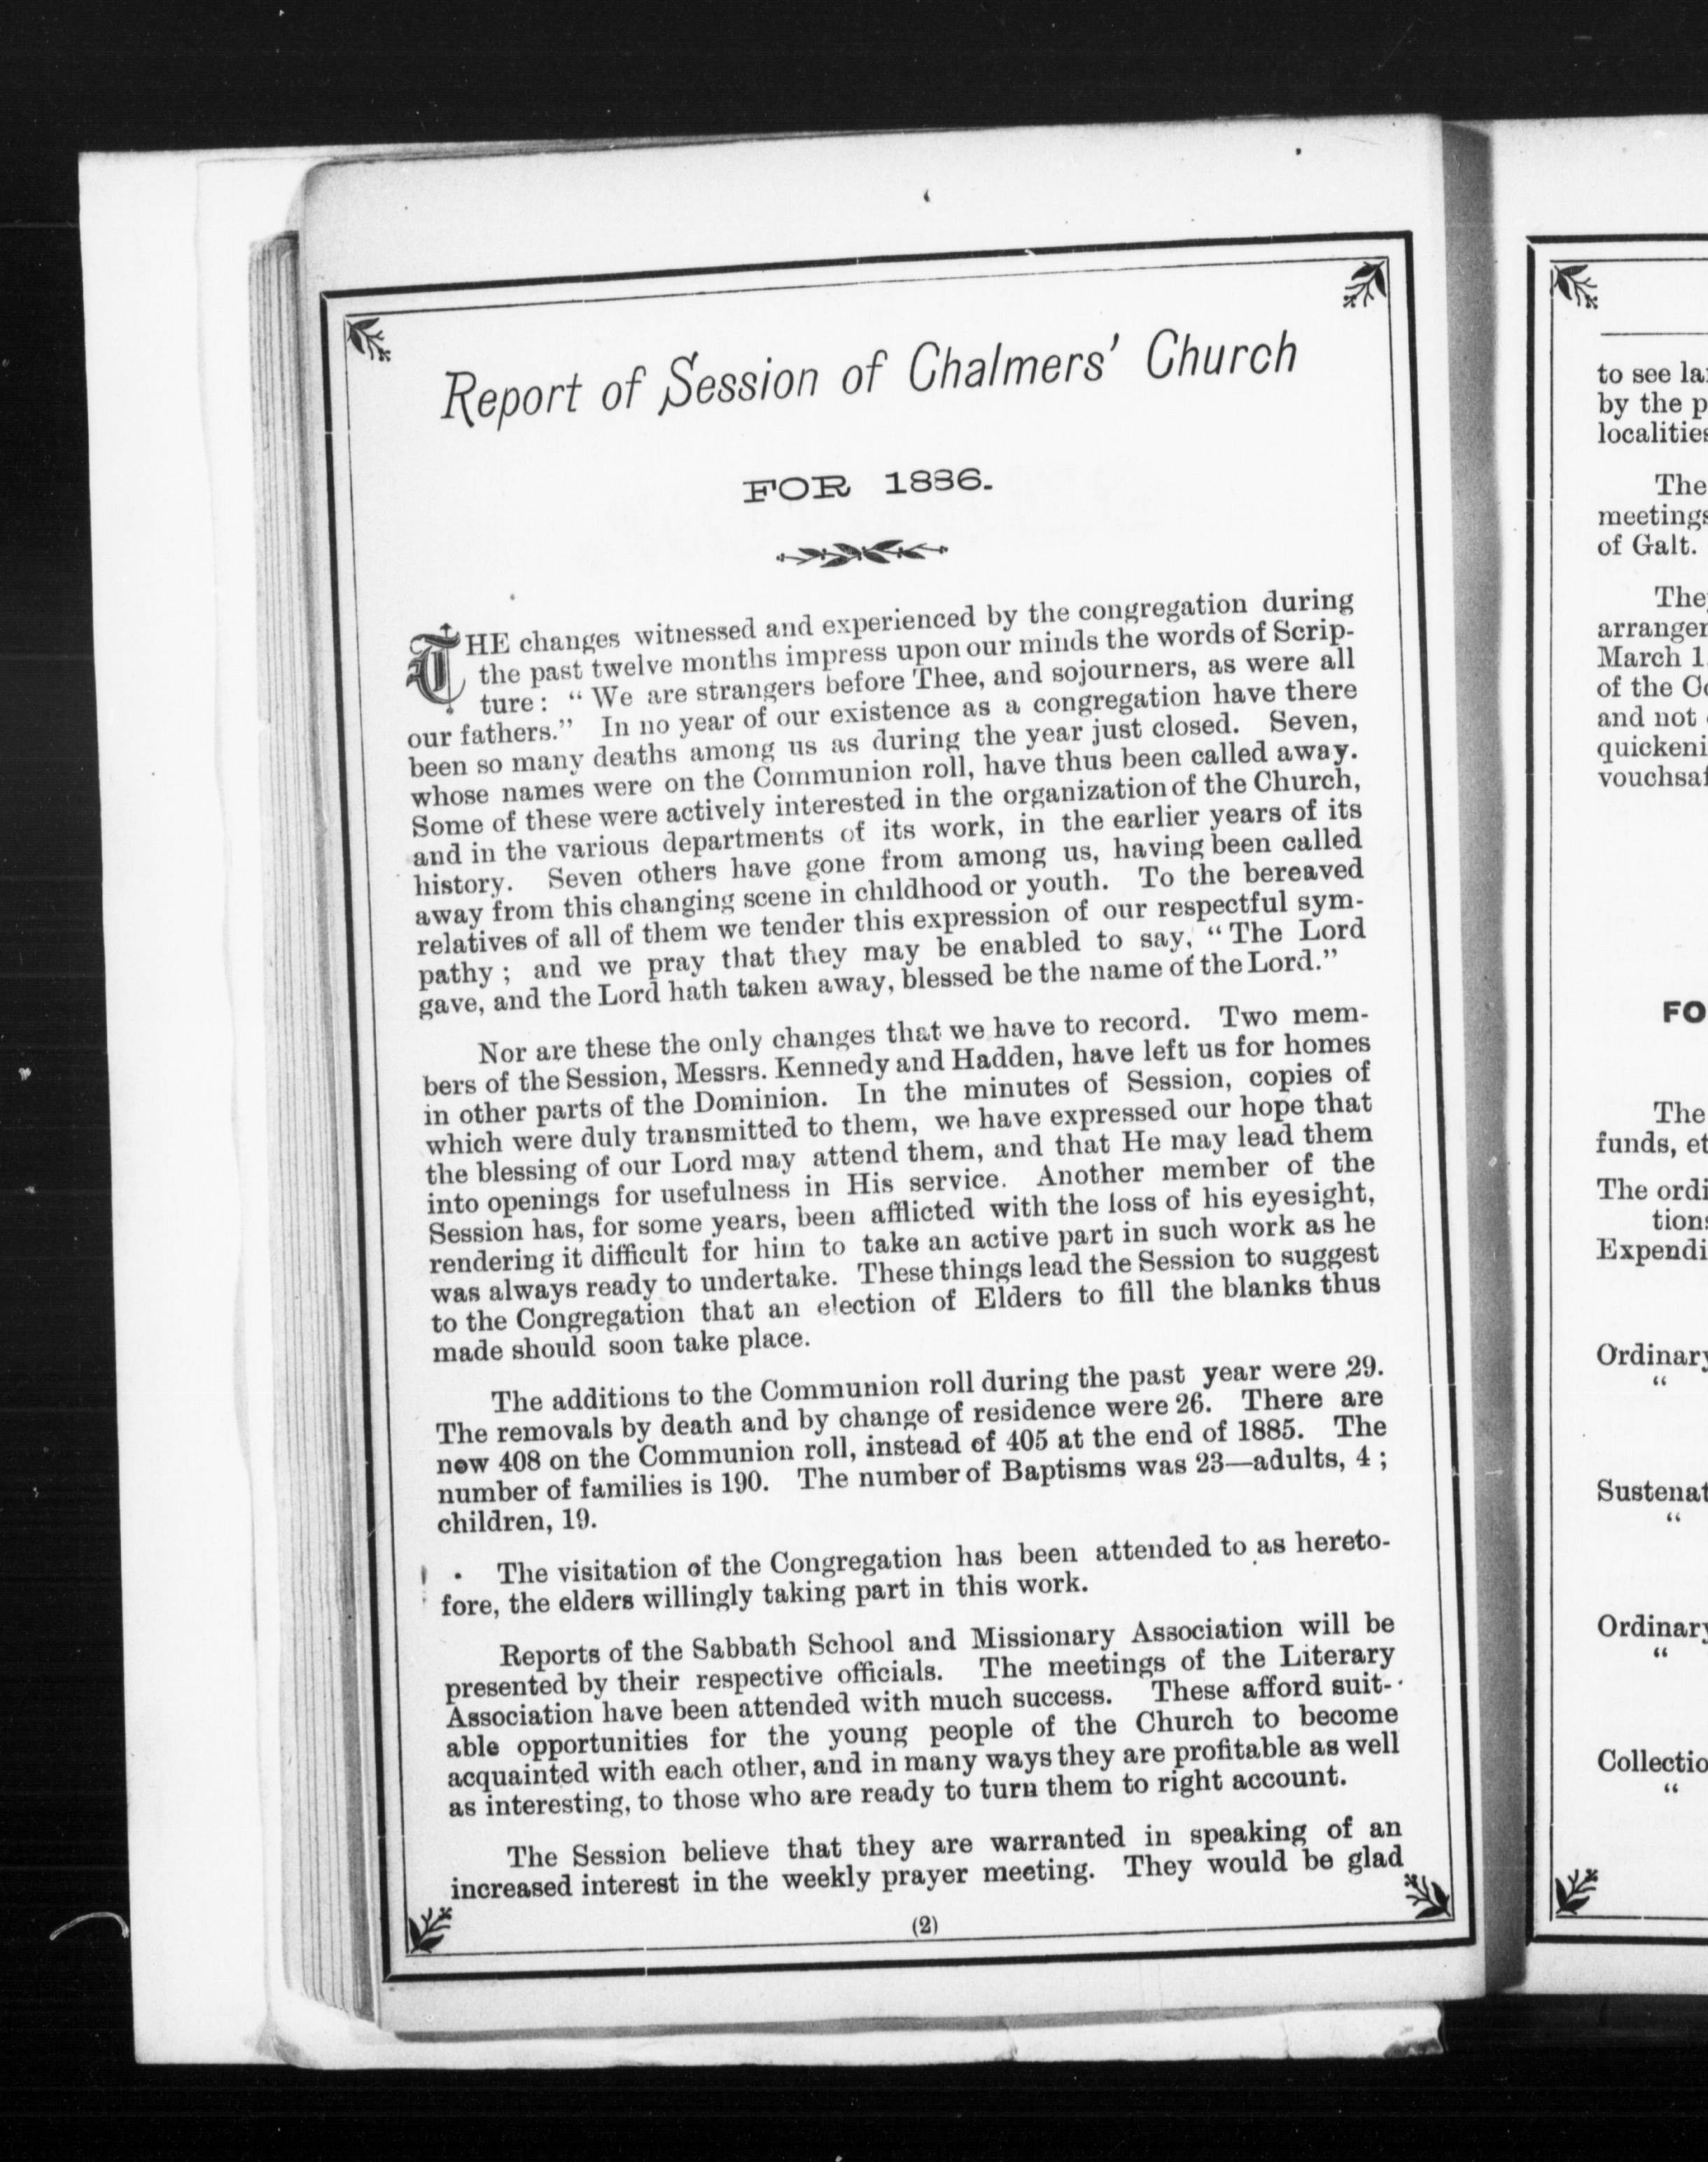 Report of Session of Chalmers' Church
FOR 1886.
THE changes witnessed and experienced by the congregation during
the past twelve months impress upon our minds the words of Scrip-
ture: "We are strangers before Thee, and sojourners, as were all
our fathers." In no year of our existence as a congregation have there
been so many deaths among us as during the year just closed. Seven,
whose names were on the Communion roll, have thus been called away.
Some of these were actively interested in the organization of the Church,
and in the various departments of its work, in the earlier years of its
history. Seven others have gone from among us, having been called
away from this changing scene in childhood or youth. To the bereaved
relatives of all of them we tender this expression of our respectful sym-
pathy; and we pray that they may be enabled to say, "The Lord
gave, and the Lord hath taken away, blessed be the name of the Lord."
Nor are these the only changes that we have to record. Two mem-
bers of the Session, Messrs. Kennedy and Hadden, have left us for homes
in other parts of the Dominion. In the minutes of Session, copies of
which were duly transmitted to them, we have expressed our hope that
the blessing of our Lord may attend them, and that He may lead them
into openings for usefulness in His service. Another member of the
Session has, for some years, been afflicted with the loss of his eyesight,
rendering it difficult for him to take an active part in such work as he
was always ready to undertake. These things lead the Session to suggest
to the Congregation that an election of Elders to fill the blanks thus
made should soon take place.
The additions to the Communion roll during the past year were 29.
The removals by death and by change of residence were 26. There are
now 408 on the Communion roll, instead of 405 at the end of 1885. The
number of families is 190. The number of Baptisms was 23—adults, 4;
children, 19.
The visitation of the Congregation has been attended to as hereto-
fore, the elders willingly taking part in this work.
Reports of the Sabbath School and Missionary Association will be
presented by their respective officials. The meetings of the Literary
Association have been attended with much success. These afford suit-
able opportunities for the young people of the Church to become
acquainted with each other, and in many ways they are profitable as well
as interesting, to those who are ready to turn them to right account.
The Session believe that they are warranted in speaking of an
increased interest in the weekly prayer meeting. They would be glad
(2)
to see
by the
localities
The
meetings
of Galt.
March 1
of the
and not
The
funds,
The
Ordinary
"
"
Ordinary
"
"